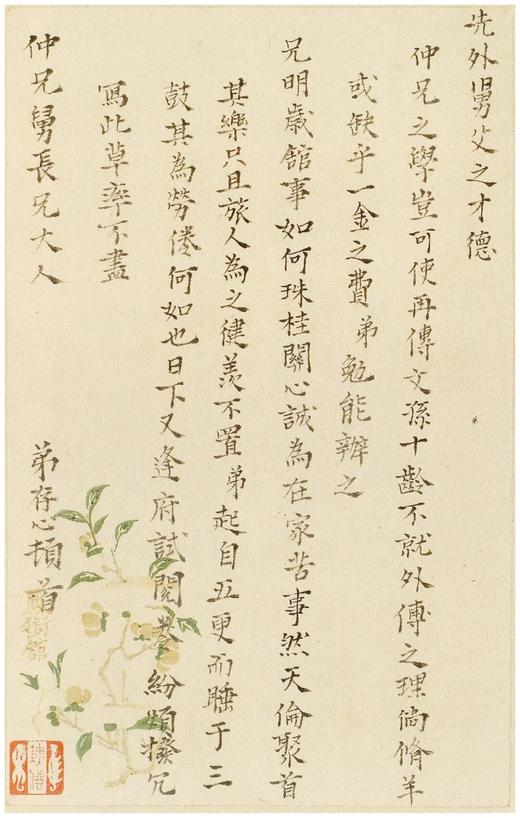 先外舅父之才德
仲兄之學豈可使再傳文孫十齡不就外傅之理尚脩羊
或缺乎一金之費弟勉能辦之
兄明歲館事如何珠桂關心誠為在家苦事然天倫聚首
其樂只且旅人為之健羨不置弟起自五更而睡于三
鼓其為勞倦何如也日下又逢府試閱卷紛煩撥冗
寫此草率不盡
仲兄舅長兄大人
弟存心頓首